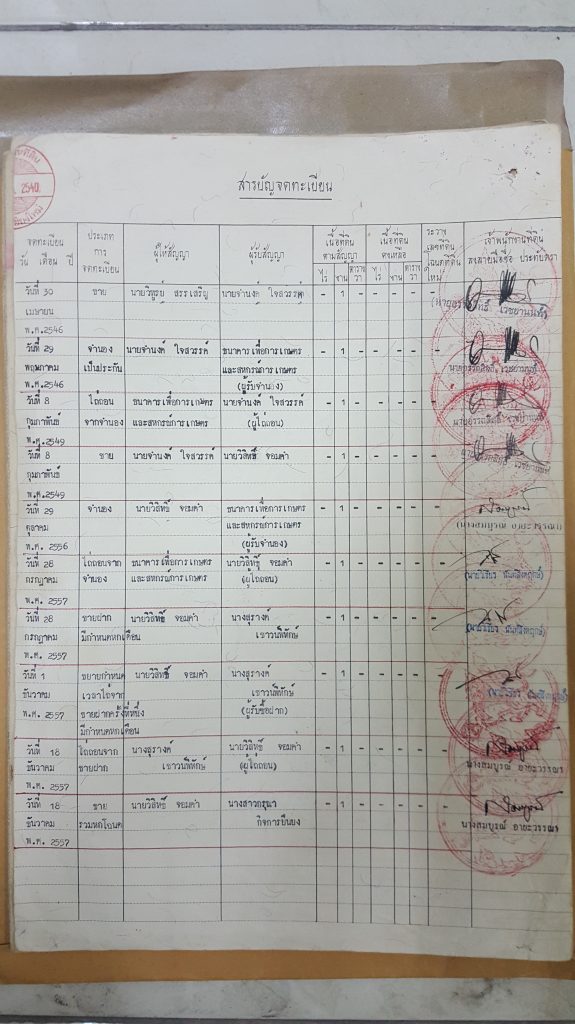 2540
สารบัญจดทะเบียน
จดทะเบียน วัน เดือน ปี
ประเภทการจดทะเบียน
ผู้ให้สัญญา
ผู้รับสัญญา
เนื้อที่ดินตามสัญญา
ไร่ งาน ตารางวา
เนื้อที่ดินคงเหลือ
ไร่ งาน ตารางวา
ระวาง เลขที่ดิน โฉนดที่ดินใหม่
เจ้าพนักงานที่ดิน ลงลายมือชื่อ ประทับตรา
วันที่ 30 ขาย นายวิฑูรย์ สรรเสริญ นายจำนงค์ ใจสวรรค์ - 1 - - - - -
เมษายน
พ.ศ.2546
วันที่ 29 จำนอง นายจำนงค์ ใจสวรรค์ ธนาคารเพื่อการเกษตร - 1 - - - - -
พฤษภาคม เป็นประกัน และสหกรณ์การเกษตร
พ.ศ.2546 (ผู้รับจำนอง)
วันที่ 8 ไถ่ถอน ธนาคารเพื่อการเกษตร นายจำนงค์ ใจสวรรค์ - 1 - - - - -
กุมภาพันธ์ จากจำนอง และสหกรณ์การเกษตร (ผู้ไถ่ถอน)
พ.ศ.2549
วันที่ 8 ขาย นายจำนงค์ ใจสวรรค์ นายวิสิทธิ์ จอมคำ - 1 - - - - -
กุมภาพันธ์
พ.ศ.2549
วันที่ 29 จำนอง นายวิสิทธิ์ จอมคำ ธนาคารเพื่อการเกษตร - 1 - - - - -
ตุลาคม และสหกรณ์การเกษตร (นางสมบูรณ์ อายะวรรณา)
พ.ศ. 2556 (ผู้รับจำนอง)
วันที่ 28 ไถ่ถอนจาก ธนาคารเพื่อการเกษตร นายวิสิทธิ์ จอมคำ - 1 - - - - -
กรกฎาคม จำนอง และสหกรณ์การเกษตร (ผู้ไถ่ถอน)
พ.ศ. 2557
วันที่ 28 ขายฝาก นายวิสิทธิ์ จอมคำ นางสุรางค์ - 1 - - - - -
กรกฎาคม มีกำหนดหกเดือน เชาวน์พิทักษ์
พ.ศ. 2557
วันที่ 1 ขยายกำหนด นายวิสิทธิ์ จอมคำ นางสุรางค์ - 1 - - - - -
ธันวาคม เวลาไถ่จาก เชาวน์พิทักษ์
พ.ศ. 2557 ขายฝากครั้งที่หนึ่ง (ผู้รับซื้อฝาก)
มีกำหนดหกเดือน
วันที่ 18 ไถ่ถอนจาก นางสุรางค์ นายวิสิทธิ์ จอมคำ - 1 - - - - -
ธันวาคม ขายฝาก เชาวน์พิทักษ์ (ผู้ไถ่ถอน) นางสมบูรณ์ อายะวรรณา
พ.ศ. 2557
วันที่ 18 ขาย นายวิสิทธิ์ จอมคำ นางสาวกรุณา - 1 - - - - -
ธันวาคม รวมหกโฉนด กิจการยืนยง นางสมบูรณ์ อายะวรรณา
พ.ศ. 2557